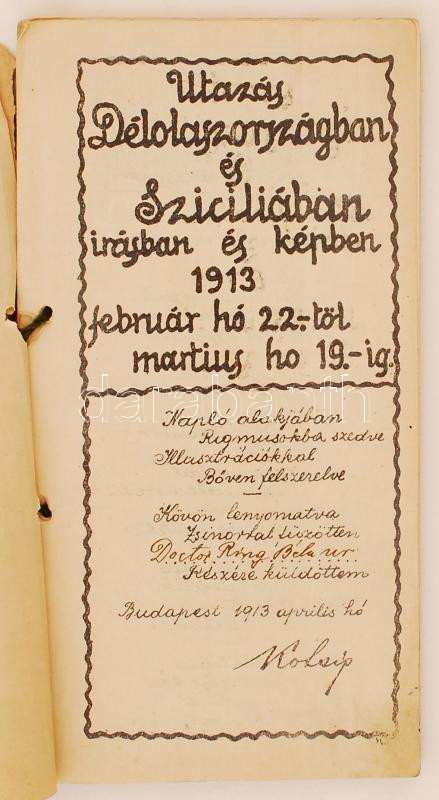 Utazás
Délolaszországban
és
Sziciliában
irásban és képben
1913
február hó 22.-től
martius ho 19-ig.
darabanth
Napló alakjában
Rigmusokba szedve
Illusztrációkkal
Bőven felszerelve
Kövön lenyomatva
Zsinorral füzötten
Doctor Ring Béla ur
Részére küldöttem
Budapest 1913 április hó